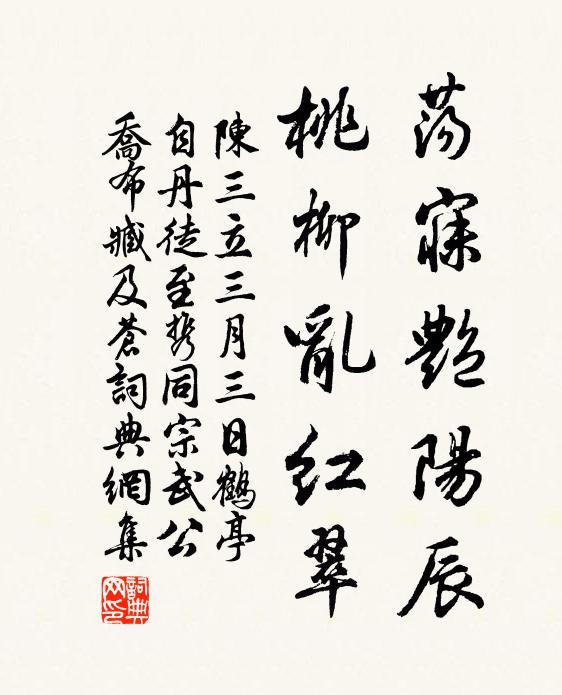 荡寐艷陽辰
桃柳亂紅翠
陳三立三月三日鶴亭
自丹徒至携同宗武公
喬布臧及蒼詞典網集
詞典网印